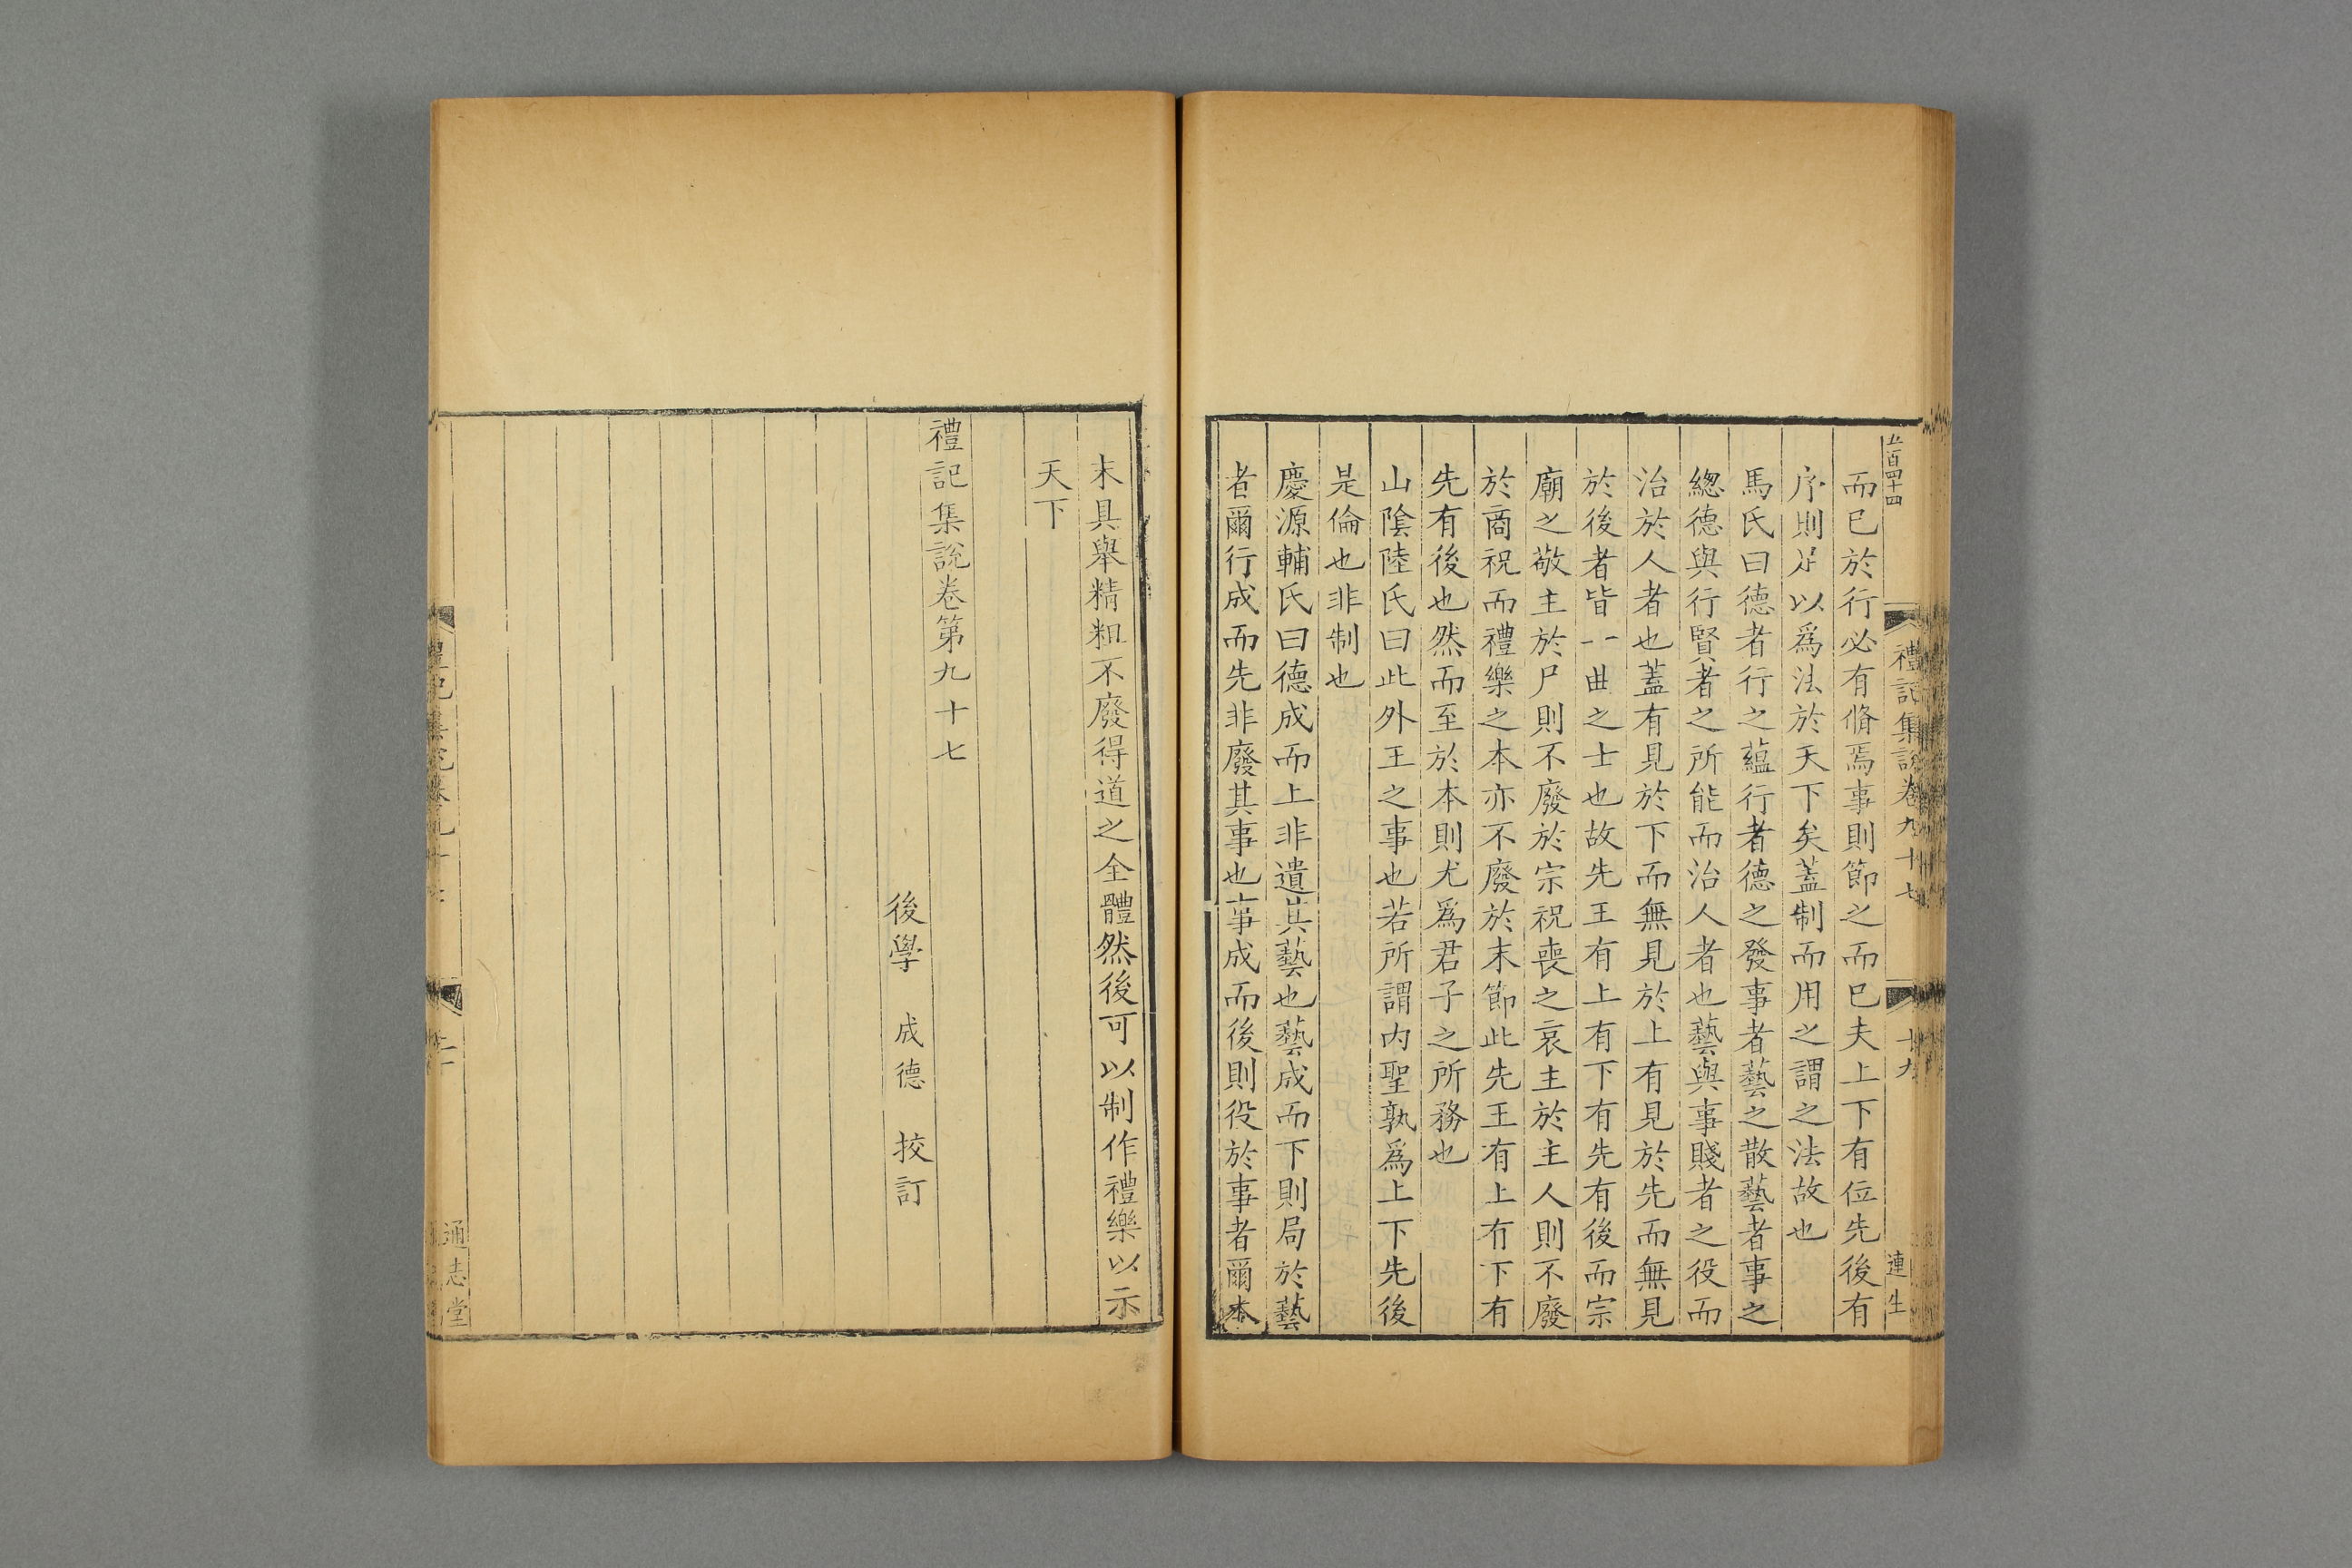 五百四十四
禮記集說卷九十七
十九
連生
而已於行必有脩焉事則節之而已夫上下有位先後有
序則足以爲法於天下矣蓋制而用之謂之法故也
馬氏曰德者行之蘊行者德之發事者藝之散藝者事之
緫德與行賢者之所能而治人者也藝與事賤者之役而
治於人者也蓋有見於下而無見於上有見於先而無見
於後者皆一曲之士也故先王有上有下有先有後而宗
廟之敬主於尸則不廢於宗祝喪之哀主於主人則不廢
於商祝而禮樂之本亦不廢於末節此先王有上有下有
先有後也然而至於本則尤爲君子之所務也
山陰陸氏曰此外王之事也若所謂内聖孰爲上下先後
是倫也非制也
慶源輔氏曰德成而上非遺其藝也藝成而下則局於藝
者爾行成而先非廢其事也事成而後則役於事者爾本
末具舉精粗不廢得道之全體然後可以制作禮樂以示
天下
禮記集說卷第九十七
後學 成德 挍訂
通志堂